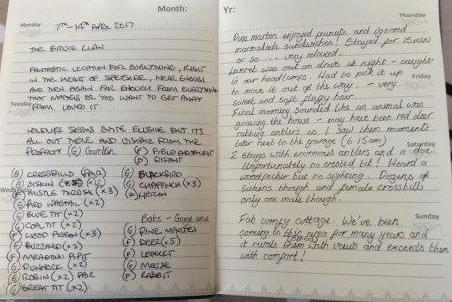 Month:
Yr:
Monday
7TH-14TH APRIL 2017
THE BRUCE CLAN
FANTASTIC LOCATION FOR EVERYTHING, RIGHT
IN THE HEART OF SPEYSIDE, NEAR ENOUGH
AND THEN AGAIN FAR ENOUGH FROM EVERYTHING
Tuesday
THAT MATTERS OR YOU WANT TO GET AWAY
FROM. LOVED IT
WILDLIFE SEEMS QUITE ELUSIVE BUT IT'S
ALL OUT THERE AND VISIBLE FROM THE
PROPERTY Ⓖ Garden Ⓕ FIELD
Ⓓ DISTANT
Ⓖ CROSSBILLS (PAIR)
Ⓖ BLACKBIRD
Ⓖ SISKIN
Ⓖ CHAFFINCH (×3)
Wed
MISTLE THRUSH (×3)
HERON
PIED WAGTAIL (×2)
Ⓖ BLUE TIT (×2)
Bats -
Ⓖ COAL TIT (×2)
Ⓖ PINE MARTEN
WOOD PIGEON (×3)
DEER (×5)
BUZZARD (×2)
LEVERET
MEADOW PIPIT
MOUSE
Ⓖ DUNNOCK (×2)
RABBIT
Ⓖ ROBIN (×2) PAIR
Ⓖ GREAT TIT (×2)
Thursday
Pine marten enjoyed peanuts and
marmalade sandwiches! Stayed for 15 min
or so ... very relaxed.
Leveret was out on drive at night - caught
in our headlamps. Had to pick it up
Friday
to move it out of the way - very
sweet and light fluffy hair.
Final morning sounded like an animal was
around the house - may have been red deer
rubbing antlers as I saw them moments
later next to the garage (6.15am)
Saturday
2 stags with enormous antlers and a doe.
Unfortunately no crested tit! Heard a
woodpecker but no sighting. Dozens of
siskins though and female crossbills
only one male though.
Fab comfy cottage. We've been
Sunday
coming to this area for many years and
it suits them with views and exceeds them
with comfort!